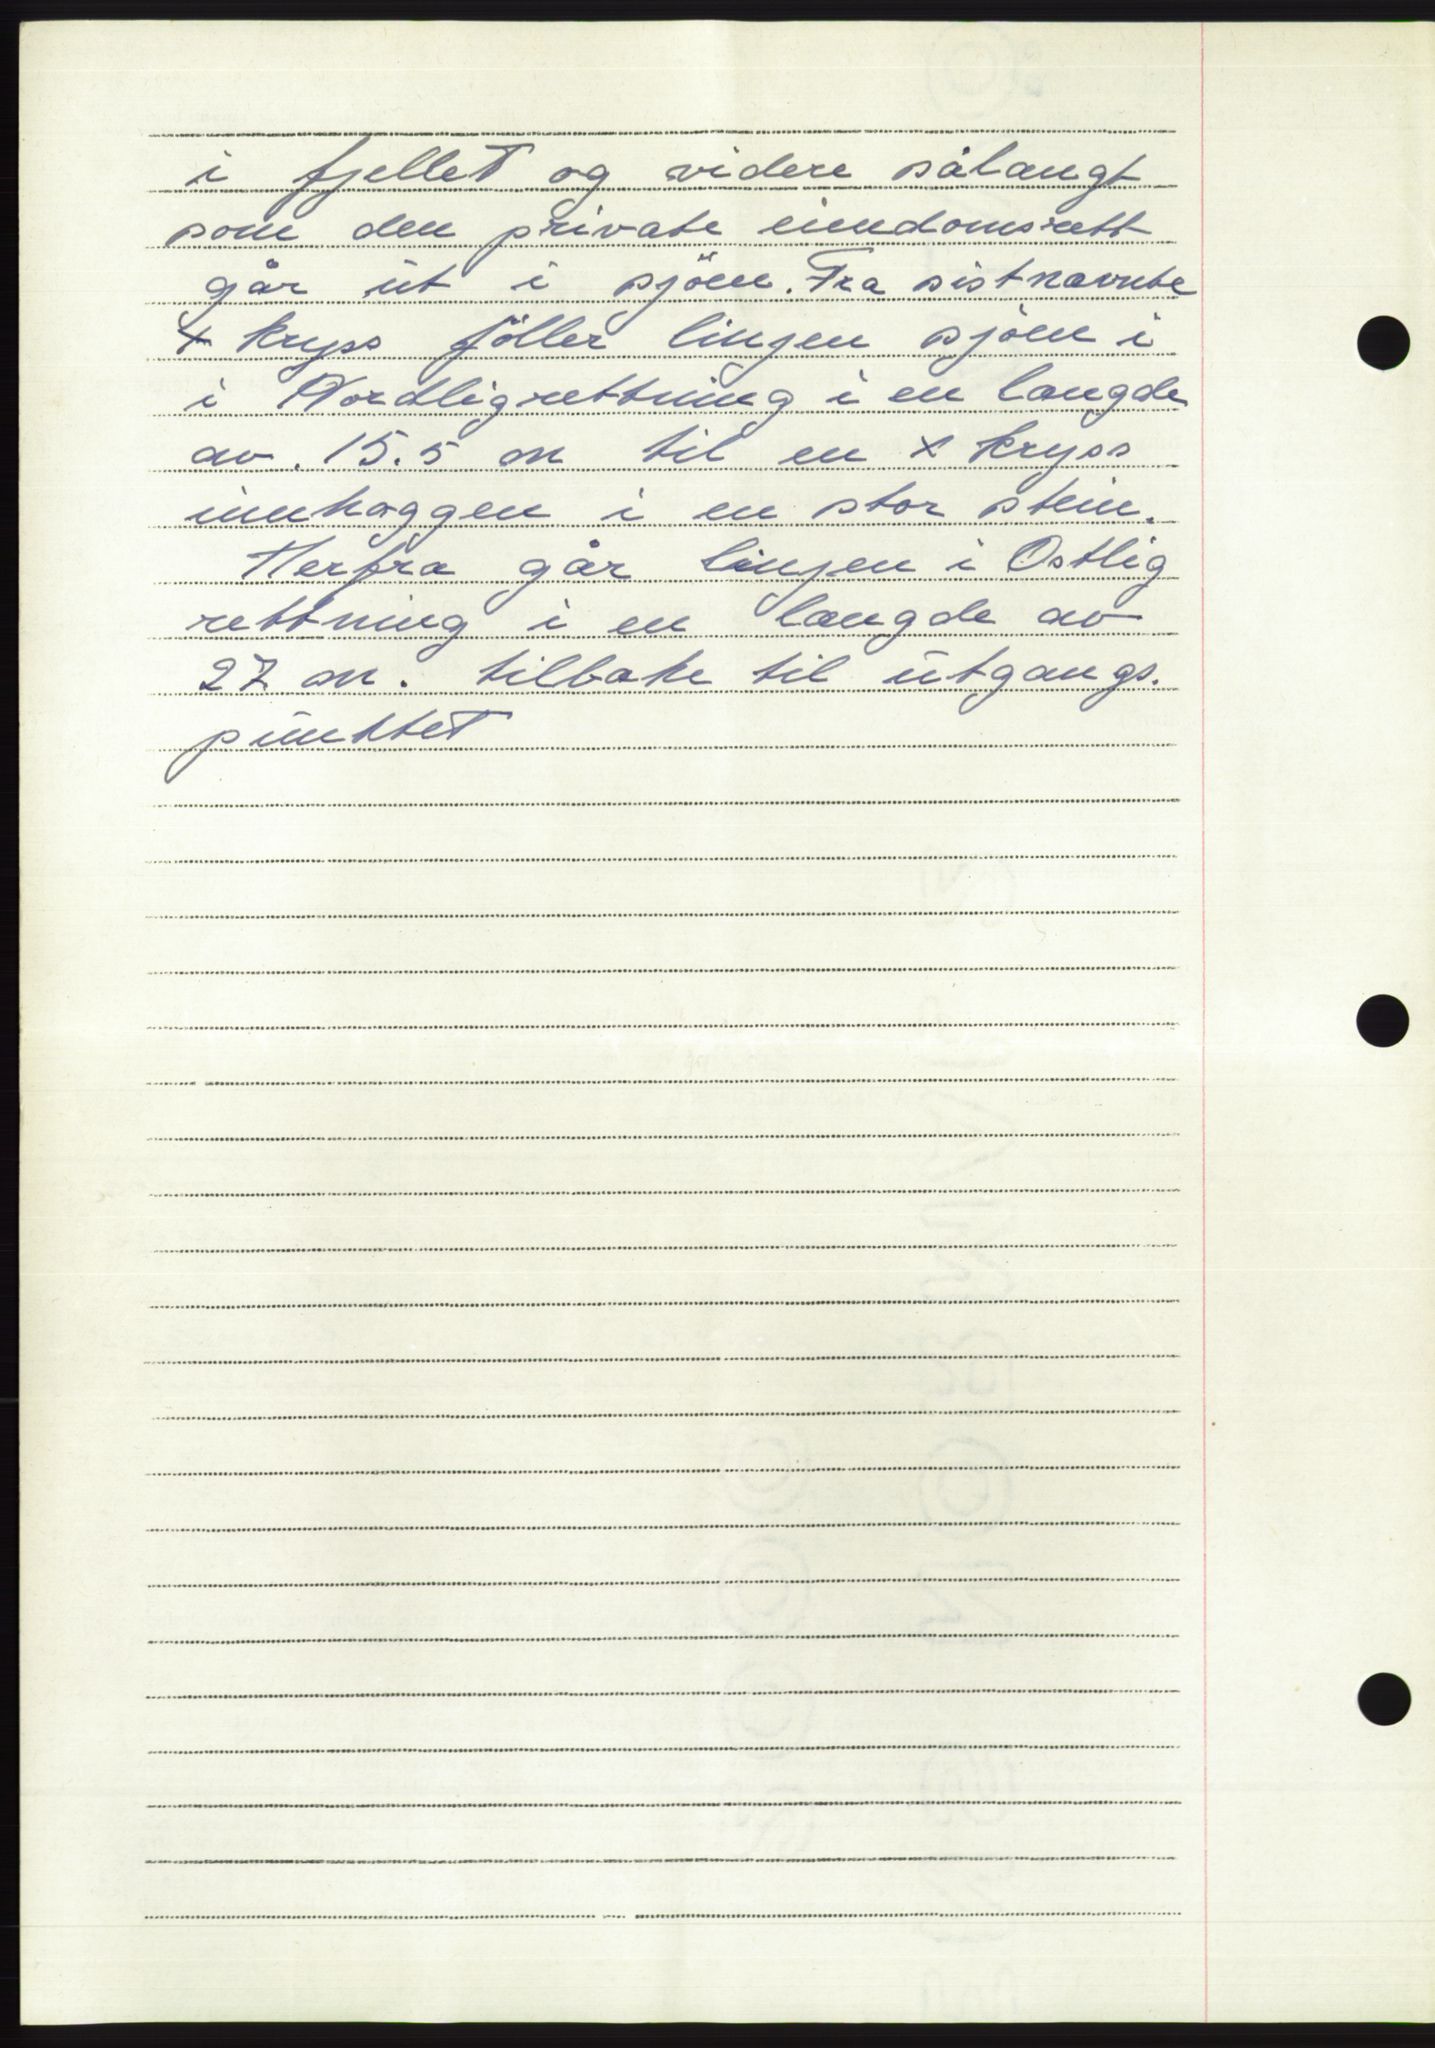 i fjellet og videre sålangt
som den private eiendomsrett
går ut i sjöen. Fra sistnævnte
x kryss föller linjen sjöen i
i Nordligrettning i en længde
av. 15.5 m til en x kryss
innhoggen i en stor stein.
Herfra går linjen i Ostlig
rettning i en længde av
27 m. tilbake til utgangs.
punktet